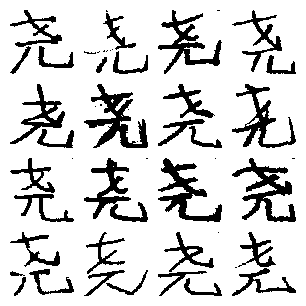 尧尧尧尧
尧尧尧尧
尧尧尧尧
尧尧尧尧